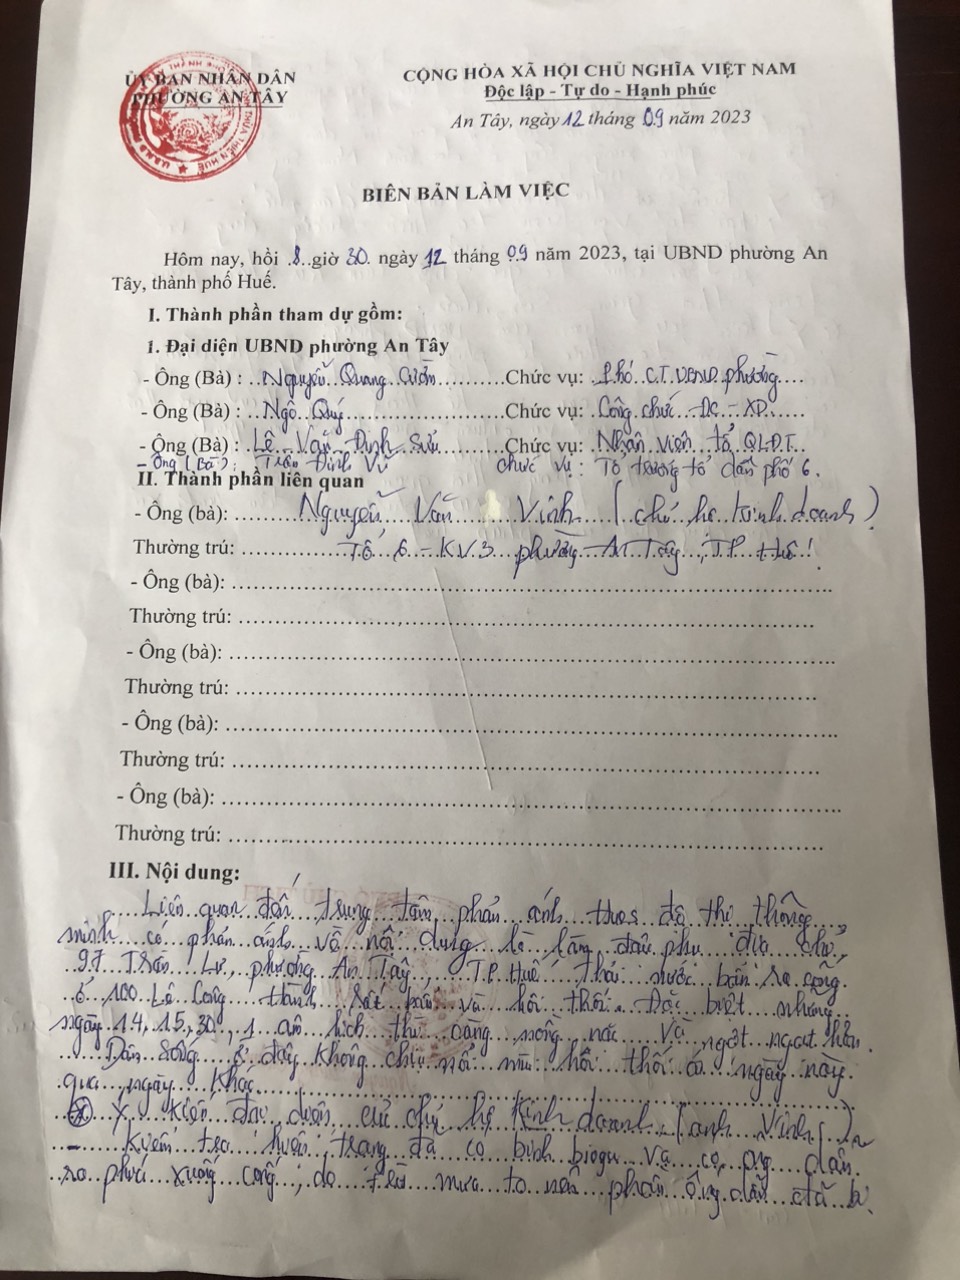 ỦY BAN NHÂN DÂN
PHƯỜNG AN TÂY
CỘNG HÒA XÃ HỘI CHỦ NGHĨA VIỆT NAM
Độc lập - Tự do - Hạnh phúc
An Tây, ngày 12 tháng 09 năm 2023
BIÊN BẢN LÀM VIỆC
Hôm nay, hồi 8 giờ 30 ngày 12 tháng 09 năm 2023, tại UBND phường An
Tây, thành phố Huế.
I. Thành phần tham dự gồm:
1. Đại diện UBND phường An Tây
- Ông (Bà) : Nguyễn Quang Chức vụ: Phó C.T UBND phường
- Ông (Bà) : Ngô Quý Chức vụ: Công chức ĐC - XD
- Ông (Bà) : Lê Văn Định Sửu Chức vụ: Nhân viên tổ QLĐT
- Ông (Bà) : Trần Đình Vũ chức vụ : Tổ trưởng tổ dân phố 6.
II. Thành phần liên quan
- Ông (bà): Nguyễn Văn Vinh (chủ hộ kinh doanh)
Thường trú: Tổ 6 - KV.3 phường An Tây, T.P Huế!
- Ông (bà):
Thường trú:
- Ông (bà):
Thường trú:
- Ông (bà):
Thường trú:
- Ông (bà):
Thường trú:
III. Nội dung:
Liên quan đến trung tâm phản ánh đô thị thông
minh có phản ánh về nội dung là làm đậu phụ địa chỉ
97 Trần Lư, phường An Tây, T.P Huế, thải nước bẩn ra cống
ở 100 Lê Công Hành rất bẩn và hôi thối. Đặc biệt những
ngày 14, 15, 30, 1 âm lịch thì càng nồng nặc và ngột ngạt hơn.
Dân sống ở đây không chịu nổi mùi hôi thối cả ngày này
qua ngày khác
Ý kiến đại diện của chủ hộ kinh doanh (anh Vinh)
- Kiểm tra hiện trạng đã có bình bioga và có ống dẫn
ra phía xuống cống, do trời mưa to nên phần ống dẫn đã bị